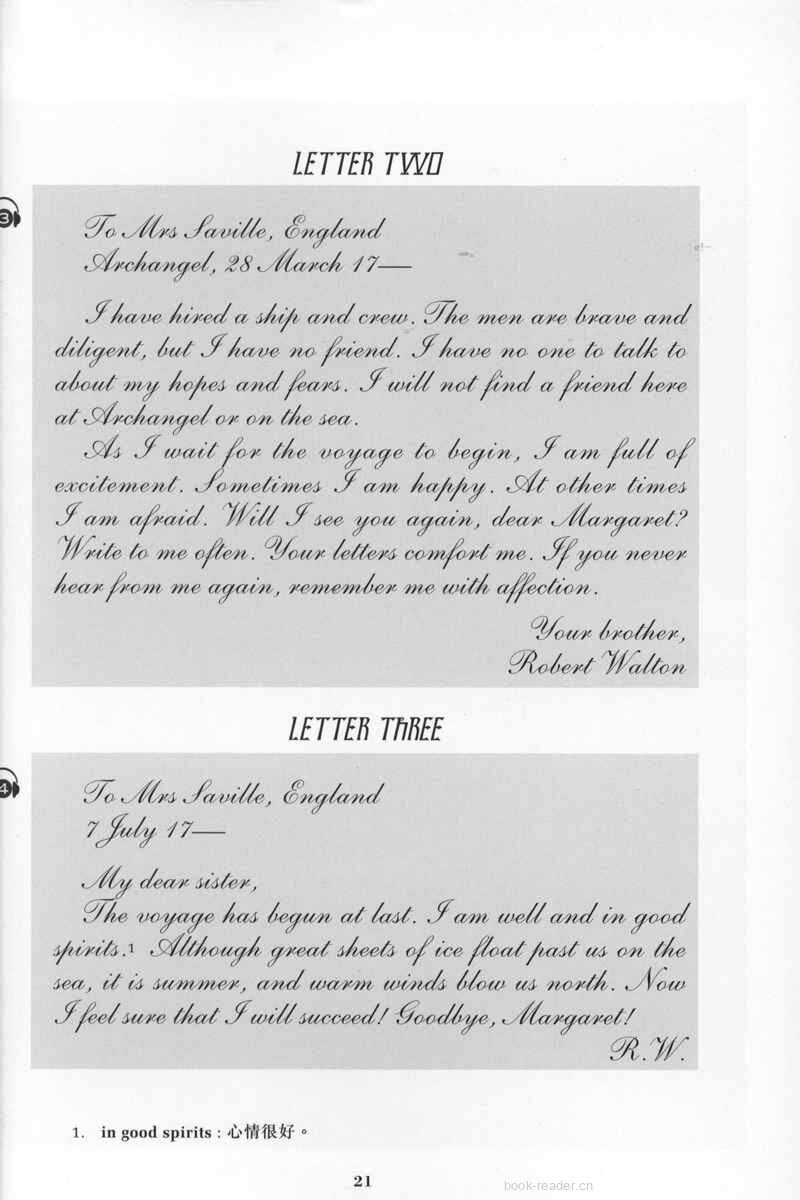 LETTER TWO
3
To Mrs Saville, England
Archangel, 28 March 17—
I have hired a ship and crew. The men are brave and
diligent, but I have no friend. I have no one to talk to
about my hopes and fears. I will not find a friend here
at Archangel or on the sea.
As I wait for the voyage to begin, I am full of
excitement. Sometimes I am happy. At other times
I am afraid. Will I see you again, dear Margaret?
Write to me often. Your letters comfort me. If you never
hear from me again, remember me with affection.
Your brother,
Robert Walton
LETTER THREE
4
To Mrs Saville, England
7 July 17—
My dear sister,
The voyage has begun at last. I am well and in good
spirits.1 Although great sheets of ice float past us on the
sea, it is summer, and warm winds blow us north. Now
I feel sure that I will succeed! Goodbye, Margaret!
R.W.
1. in good spirits : 心情很好。
21
book-reader.cn